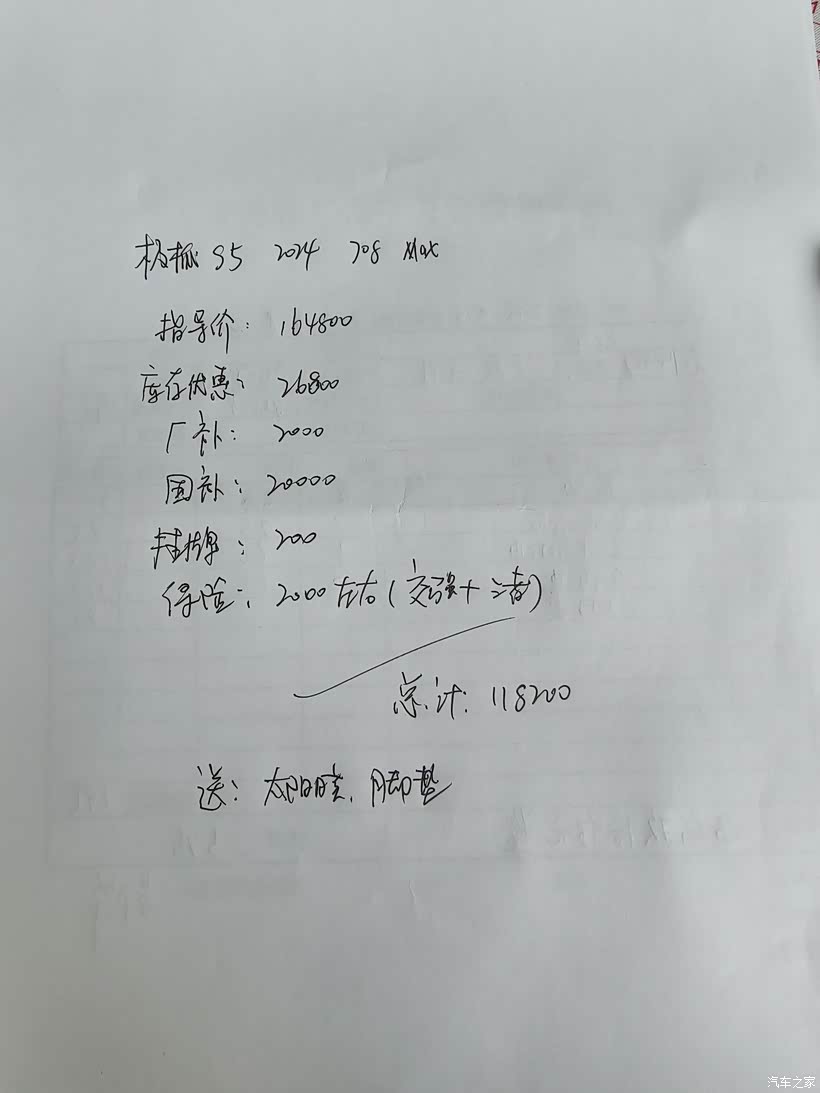 极狐 S5 2024 708 Max
指导价: 164800
库存优惠: 26800
厂补: 2000
国补: 20000
挂牌: 200
保险: 2000左右(交强+三者)
总计: 118200
送: 太阳膜、脚垫
汽车之家